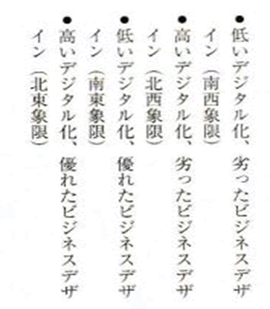 ●低いデジタル化、劣ったビジネスデザ
イン（南西象限）
●高いデジタル化、劣ったビジネスデザ
イン（北西象限）
●低いデジタル化、優れたビジネスデザ
イン（南東象限）
●高いデジタル化、優れたビジネスデザ
イン（北東象限）